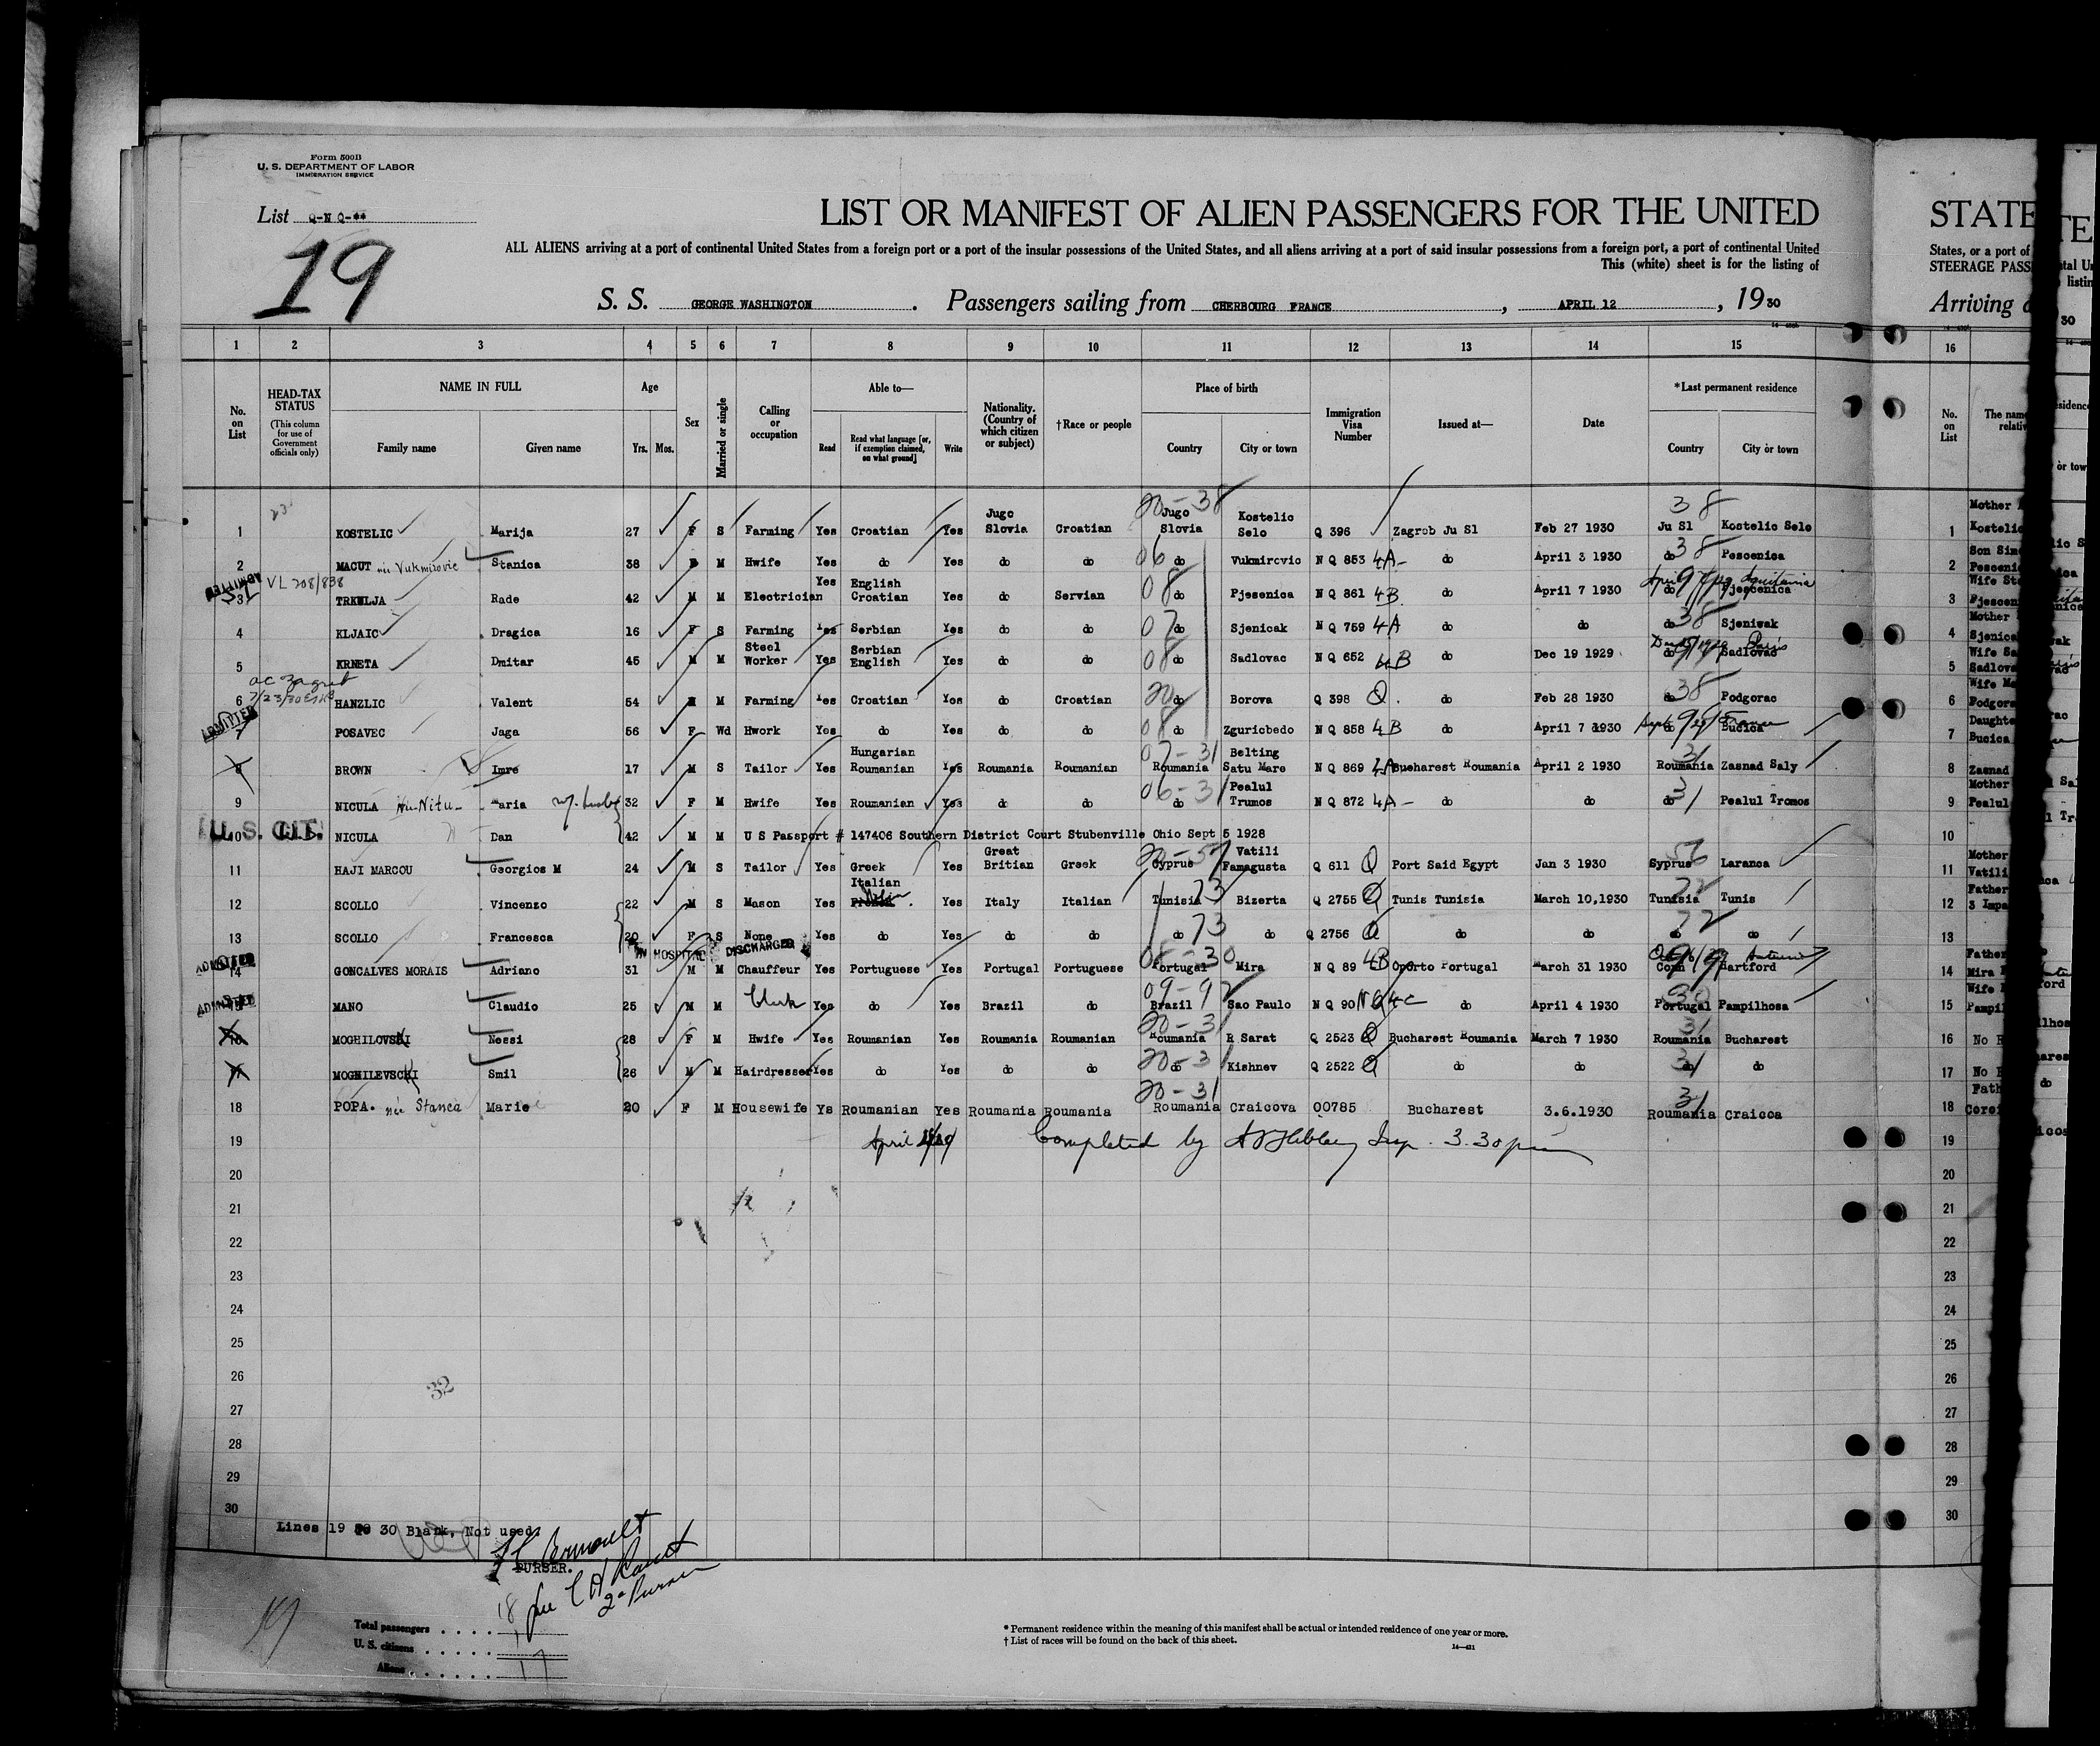 Form 500B
U. S. DEPARTMENT OF LABOR
IMMIGRATION SERVICE
List Q-N Q-**
19
LIST OR MANIFEST OF ALIEN PASSENGERS FOR THE UNITED
ALL ALIENS arriving at a port of continental United States from a foreign port or a port of the insular possessions of the United States, and all aliens arriving at a port of said insular possessions from a foreign port, a port of continental United
This (white) sheet is for the listing of
S. S. GEORGE WASHINGTON . Passengers sailing from CHERBOURG FRANCE , APRIL 12 , 1930
STATE
States, or a port of
STEERAGE PASS
Arriving
1 2 3 4 5 6 7 8 9 10 11 12 13 14 15 16
No. on List
HEAD-TAX STATUS (This column for use of Government officials only)
NAME IN FULL Family name Given name
Age Yrs. Mos.
Sex
Married or single
Calling or occupation
Able to— Read Read what language [or, if exemption claimed, on what ground] Write
Nationality. (Country of which citizen or subject)
†Race or people
Place of birth Country City or town
Immigration Visa Number
Issued at—
Date
*Last permanent residence Country City or town
No. on List
1 KOSTELIC Marija 27 F S Farming Yes Croatian Yes Jugo Slovia Croatian 20-38 Jugo Slovia Kostelic Selo Q 396 Zagrob Ju Sl Feb 27 1930 38 Ju Sl Kostelic Selo 1 Mother Kostelic
2 MACUT née Vukmirovic Stanica 38 M Hwife Yes do Yes do do 06 do Vukmircvic N Q 853 4A- do April 3 1930 do 38 Pescenica 2 Son Sim Pesceni
ADMITTED 3 VL 208/838 TRKULJA Rade 42 M M Electrician Yes English Croatian Yes do Servian 08 do Pjesenica N Q 861 4B do April 7 1930 do Pjescenica 3 Wife Sta Pjescen
4 KLJAIC Dragica 16 F S Farming Yes Serbian Yes do do 07 do Sjenicak N Q 759 4A do do do 38 Sjeniwak 4 Mother Sjenica
5 KRNETA Dmitar 45 M M Steel Worker Yes Serbian English Yes do do 08 do Sadlovac N Q 652 4B do Dec 19 1929 do Sadlovac 5 Wife Sa Sadlova
oc Zagreb
6 HANZLIC Valent 54 M M Farming Yes Croatian Yes do Croatian 20 do Borova Q 398 Q. do Feb 28 1930 do 38 Podgorac 6 Wife Ma Podgora
ADMITTED 7 POSAVEC Jaga 56 F Wd Hwork Yes do Yes do do 08 do Zguricbedo N Q 858 4B do April 7 1930 do Bucica 7 Daughte Bucica
8 BROWN Imre 17 M S Tailor Yes Hungarian Roumanian Yes Roumania Roumanian 07-31 Roumania Belting Satu Mare N Q 869 4A Bucharest Roumania April 2 1930 31 Roumania Zasnad Saly 8 Zasnad
9 NICULA Maria 32 F M Hwife Yes Roumanian Yes do do 06-31 do Pealul Trumos N Q 872 4A- do do do 31 Pealul Tromos 9 Mother Pealul
U.S. CIT. 10 NICULA Dan 42 M M U S Passport # 147406 Southern District Court Stubenville Ohio Sept 5 1928 10
11 HAJI MARCOU Georgios M 24 M S Tailor Yes Greek Yes Great Britian Greek 20-57 Cyprus Vatili Famagusta Q 611 Q Port Said Egypt Jan 3 1930 Syprus Laranca 11 Mother Vatili
12 SCOLLO Vincenzo 22 M S Mason Yes Italian Yes Italy Italian 73 Tunisia Bizerta Q 2755 Q Tunis Tunisia March 10,1930 Tunisia Tunis 12 Father 3 Impa
13 SCOLLO Francesca 20 F S None Yes do Yes do do do 73 do Q 2756 Q do do do do 13
IN HOSPITAL DISCHARGED
ADMITTED 14 GONCALVES MORAIS Adriano 31 M M Chauffeur Yes Portuguese Yes Portugal Portuguese 08-30 Portugal Mira N Q 89 4B Oporto Portugal March 31 1930 Conn Hartford 14 Father Mira
ADMITTED 15 MANO Claudio 25 M M Clerk Yes do Yes Brazil do 09-92 Brazil Sao Paulo N Q 90 NQ 4c do April 4 1930 Portugal Pampilhosa 15 Wife Pampil
16 MOGHILOVSKI Nessi 28 F M Hwife Yes Roumanian Yes Roumania Roumanian 20-31 Roumania R Sarat Q 2523 Q Bucharest Roumania March 7 1930 31 Roumania Bucharest 16 No
17 MOGHILEVSCHI Smil 26 M M Hairdresser Yes do Yes do do 20-31 do Kishnev Q 2522 Q do do do 31 do 17 No
18 POPA. née Stanca Marie 20 F M Housewife Ys Roumanian Yes Roumania Roumania 20-31 Roumania Craicova 00785 Bucharest 3.6.1930 31 Roumania Craicoa 18 Fath
19 April Completed by Insp. 3.30 pm 19
20 20
21 21
22 22
23 23
24 24
25 25
26 26
32
27 27
28 28
29 29
30 30
Lines 19 to 30 Blank, Not used.
PURSER.
2nd Purser
Total passengers . . . . 18
U. S. citizens . . . . . 1
Aliens . . . . . . 17
* Permanent residence within the meaning of this manifest shall be actual or intended residence of one year or more.
† List of races will be found on the back of this sheet.
14—421